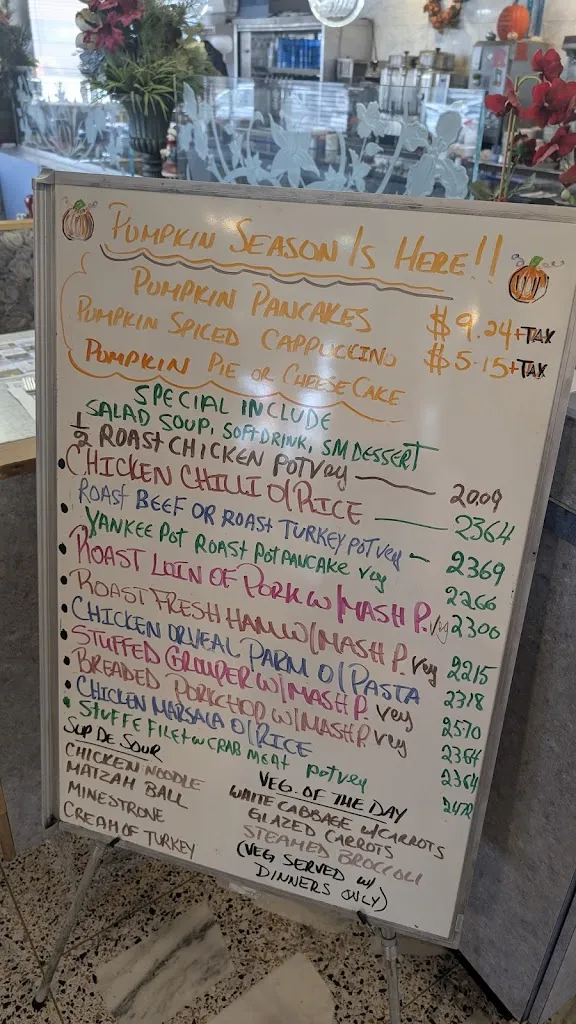 PUMPKIN SEASON IS HERE!!
PUMPKIN PANCAKES $9.24+TAX
PUMPKIN SPICED CAPPUCCINO $5.15+TAX
PUMPKIN PIE OR CHEESECAKE
SPECIAL INCLUDE
SALAD SOUP, SOFT DRINK, SM DESSERT
1/2 ROAST CHICKEN POT Veg 2009
• CHICKEN CHILLI O/RICE 2364
ROAST BEEF OR ROAST TURKEY POT veg 2369
• YANKEE POT ROAST POTPANCAKE veg 2266
• ROAST LOIN OF PORK W/MASH P. Vg 2300
• ROAST FRESH HAM W/MASH P. veg 2215
• CHICKEN OR VEAL PARM O/PASTA 2318
• STUFFED GROUPER W/MASH P. veg 2570
• BREADED PORKCHOP W/MASH P. veg 2364
• CHICKEN MARSALA O/RICE 2364
• STUFFE FILET W CRAB MEAT pot veg 2472
SUP DE SOUR
CHICKEN NOODLE
MATZAH BALL
MINESTRONE
CREAM OF TURKEY
VEG. OF THE DAY
WHITE CABBAGE W/CARROTS
GLAZED CARROTS
STEAMED BROCCOLI
(VEG SERVED W/
DINNERS ONLY)